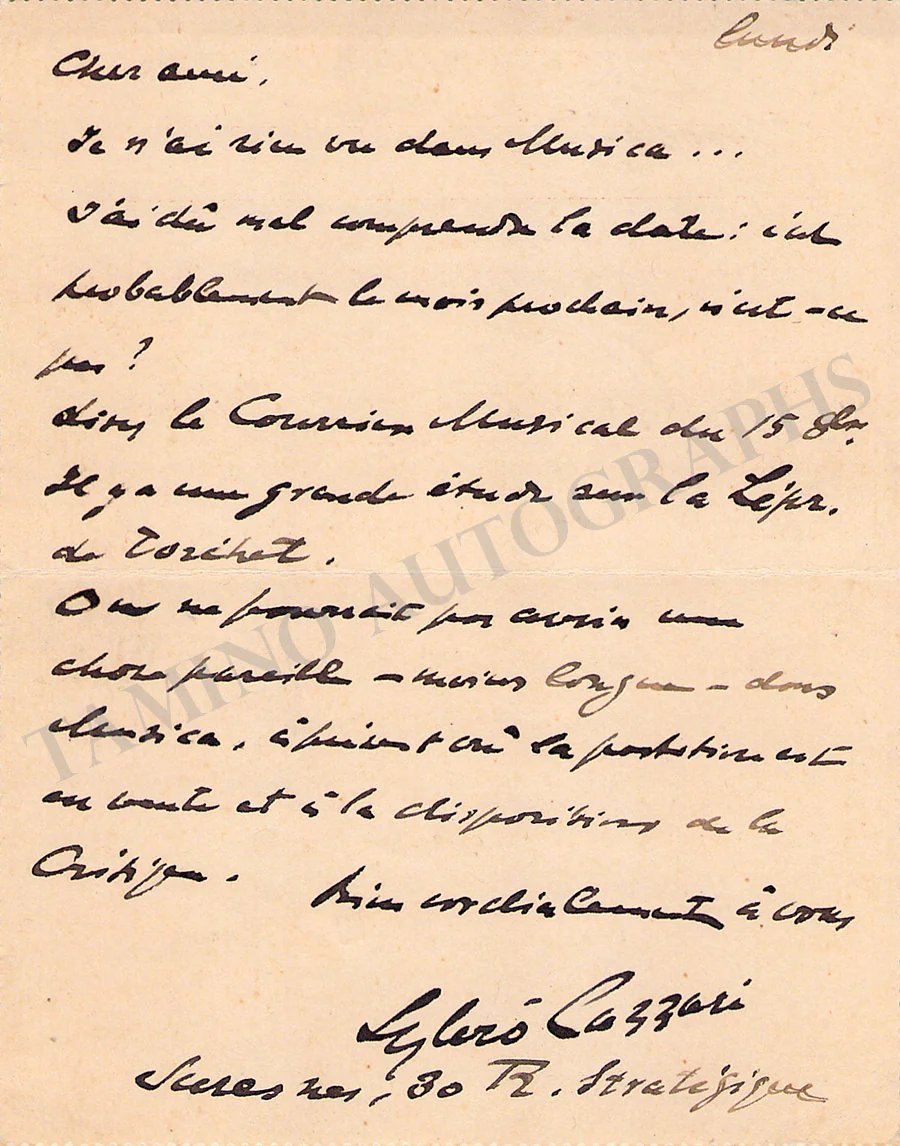 lundi
Cher ami,
Je n'ai rien vu dans Musica ...
J'ai dû mal comprendre la date : c'est
probablement le mois prochain, n'est-ce
pas ?
Lisez le Courrier Musical du 15 8bre.
Il y a une grande étude sur la Lépr.
de Torchet.
On ne pourrait pas avoir une
chose pareille - moins longue - dans
Musica, à présent où la partition est
en vente et à la disposition de la
Critique.
Bien cordialement à vous
Sylvio Lazzari
Suresnes, 30 R. Stratégique
TAMINO AUTOGRAPHS